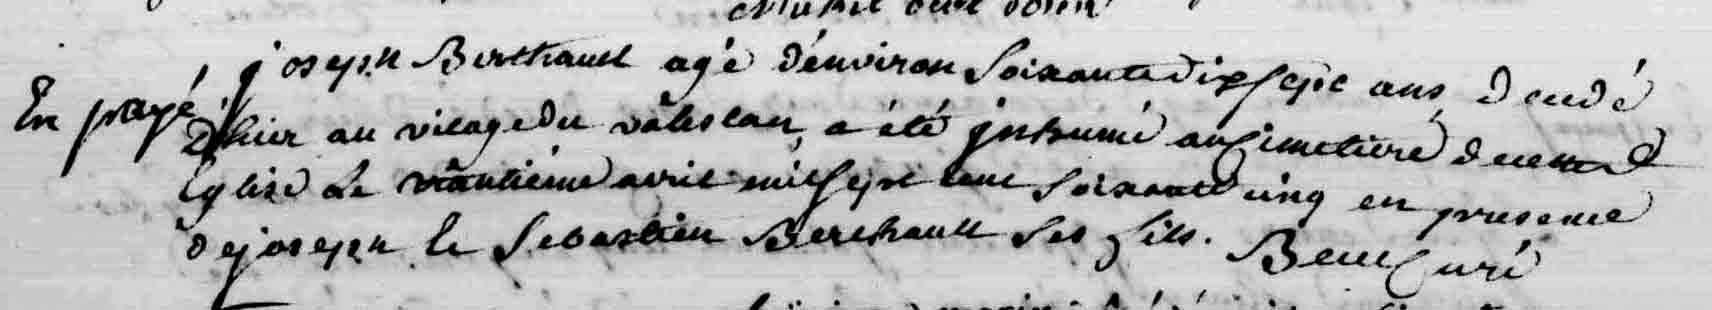 joseph Berthault agé d'environ soixante dix sept ans, decedé
En prayé D'hier au vilage du a été jnhumé au cimetiere de cette
Eglize Le vàntiéme avril mil sept cent soixante cinq en presence
de joseph & Sebastien Berthault ses fils. curé